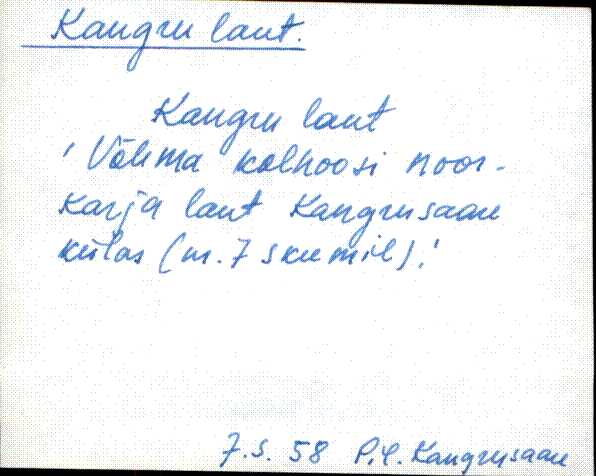 Kangru laut.
Kangru laut
'Võhma kolhoosi noor-
karja laut Kangrusaare
külas (nr. 7 skeemil).'
7.s. 58 P.-C. Kangrusaare